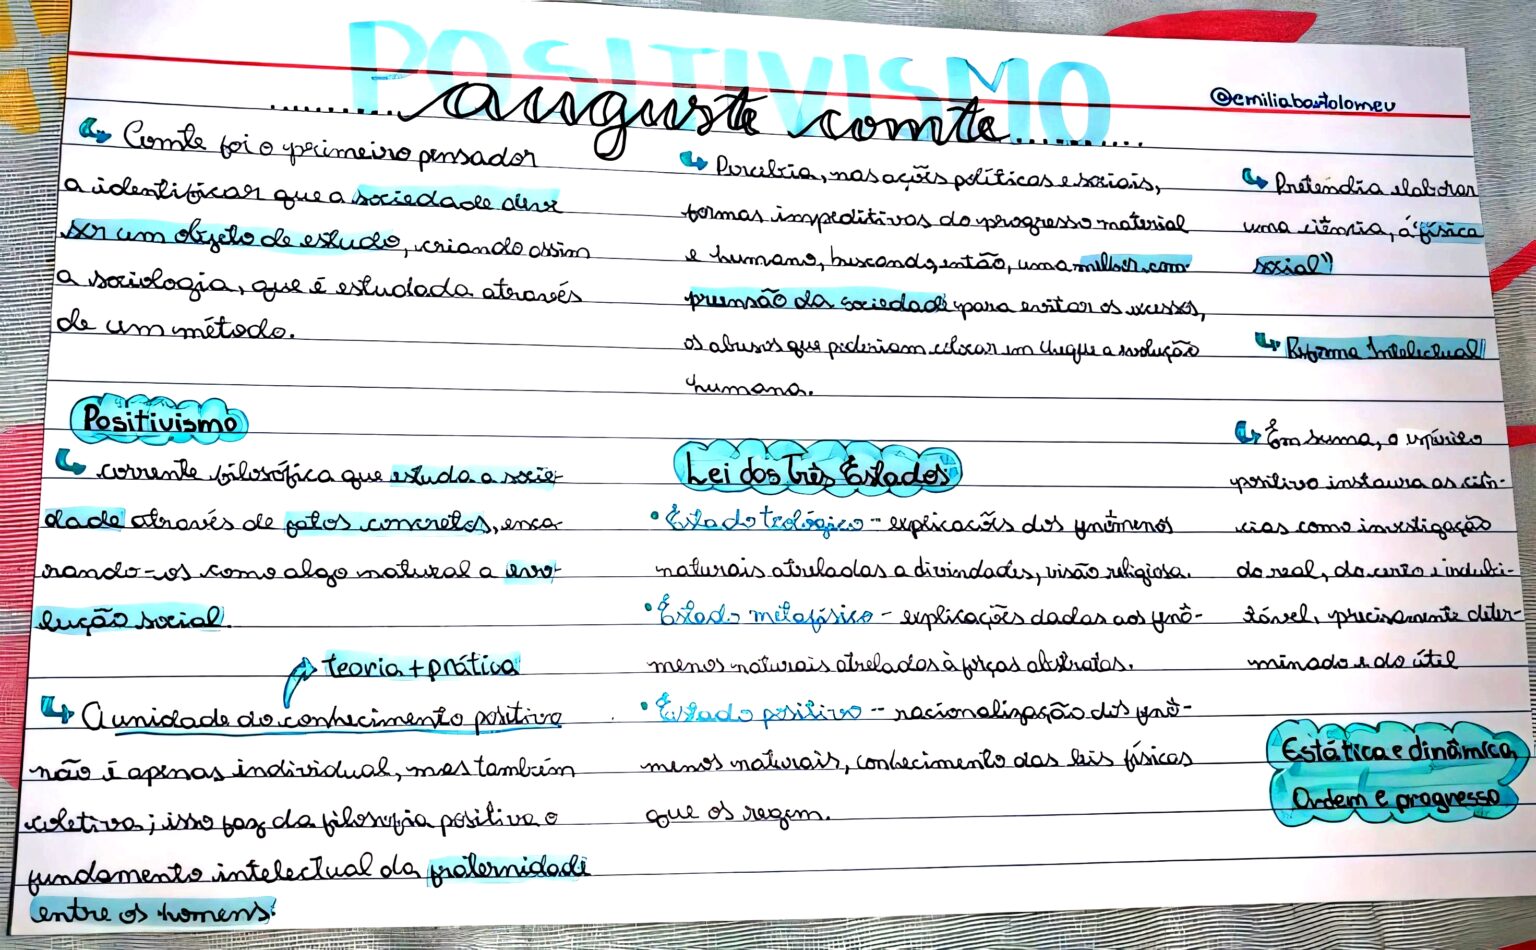 POSITIVISMO
auguste comte
@emiliabartolomeu
Comte foi o primeiro pensador
a identificar que a sociedade deve
ser um objeto de estudo, criando assim
a sociologia, que é estudada através
de um método.
Positivismo
corrente filosófica que estuda a socie-
dade através de fatos concretos, enca-
rando-os como algo natural a evo-
lução social.
teoria + prática
A unidade do conhecimento positivo
não é apenas individual, mas também
coletiva; isso faz da filosofia positiva o
fundamento intelectual da fraternidade
entre os homens.
Percebia, nas ações políticas e sociais,
formas impeditivas do progresso material
e humano, buscando, então, uma melhor com
preensão da sociedade para evitar os excessos,
os abusos que poderiam colocar em cheque a evolução
humana.
Lei dos Três Estados
• Estado teológico - explicações dos fenômenos
naturais atreladas a divindades, visão religiosa.
• Estado metafísico - explicações dadas aos fenô-
menos naturais atrelados à forças abstratas.
• Estado positivo - racionalização dos fenô-
menos naturais, conhecimento das leis físicas
que os regem.
Pretendia elaborar
uma ciência, á "física
social")
Reforma Intelectual
Em suma, o espírito
positivo instaura as ciên-
cias como investigação
do real, do certo e indubi-
tável, precisamente deter-
minado e do útil
Estática e dinâmica,
Ordem e progresso